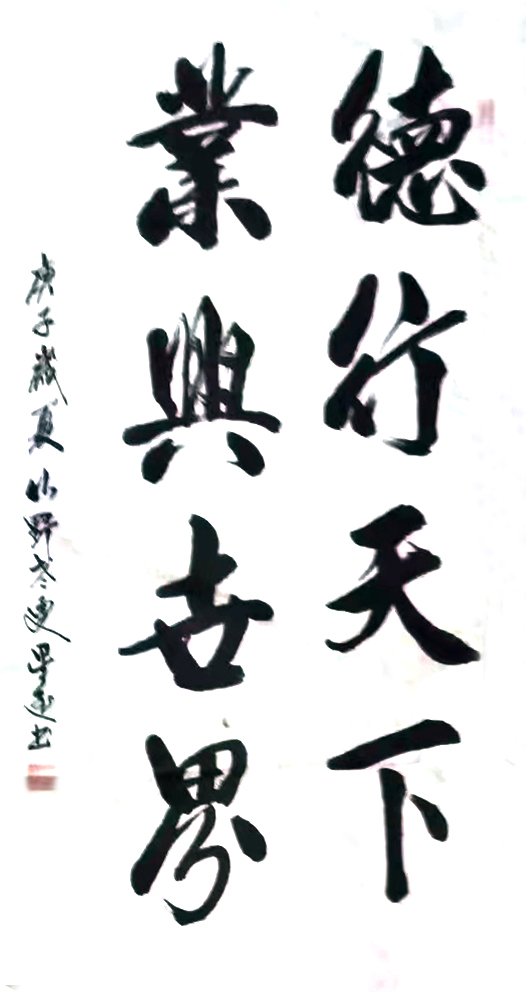 德行天下
業興世界
庚子歲夏山野老叟墨途書